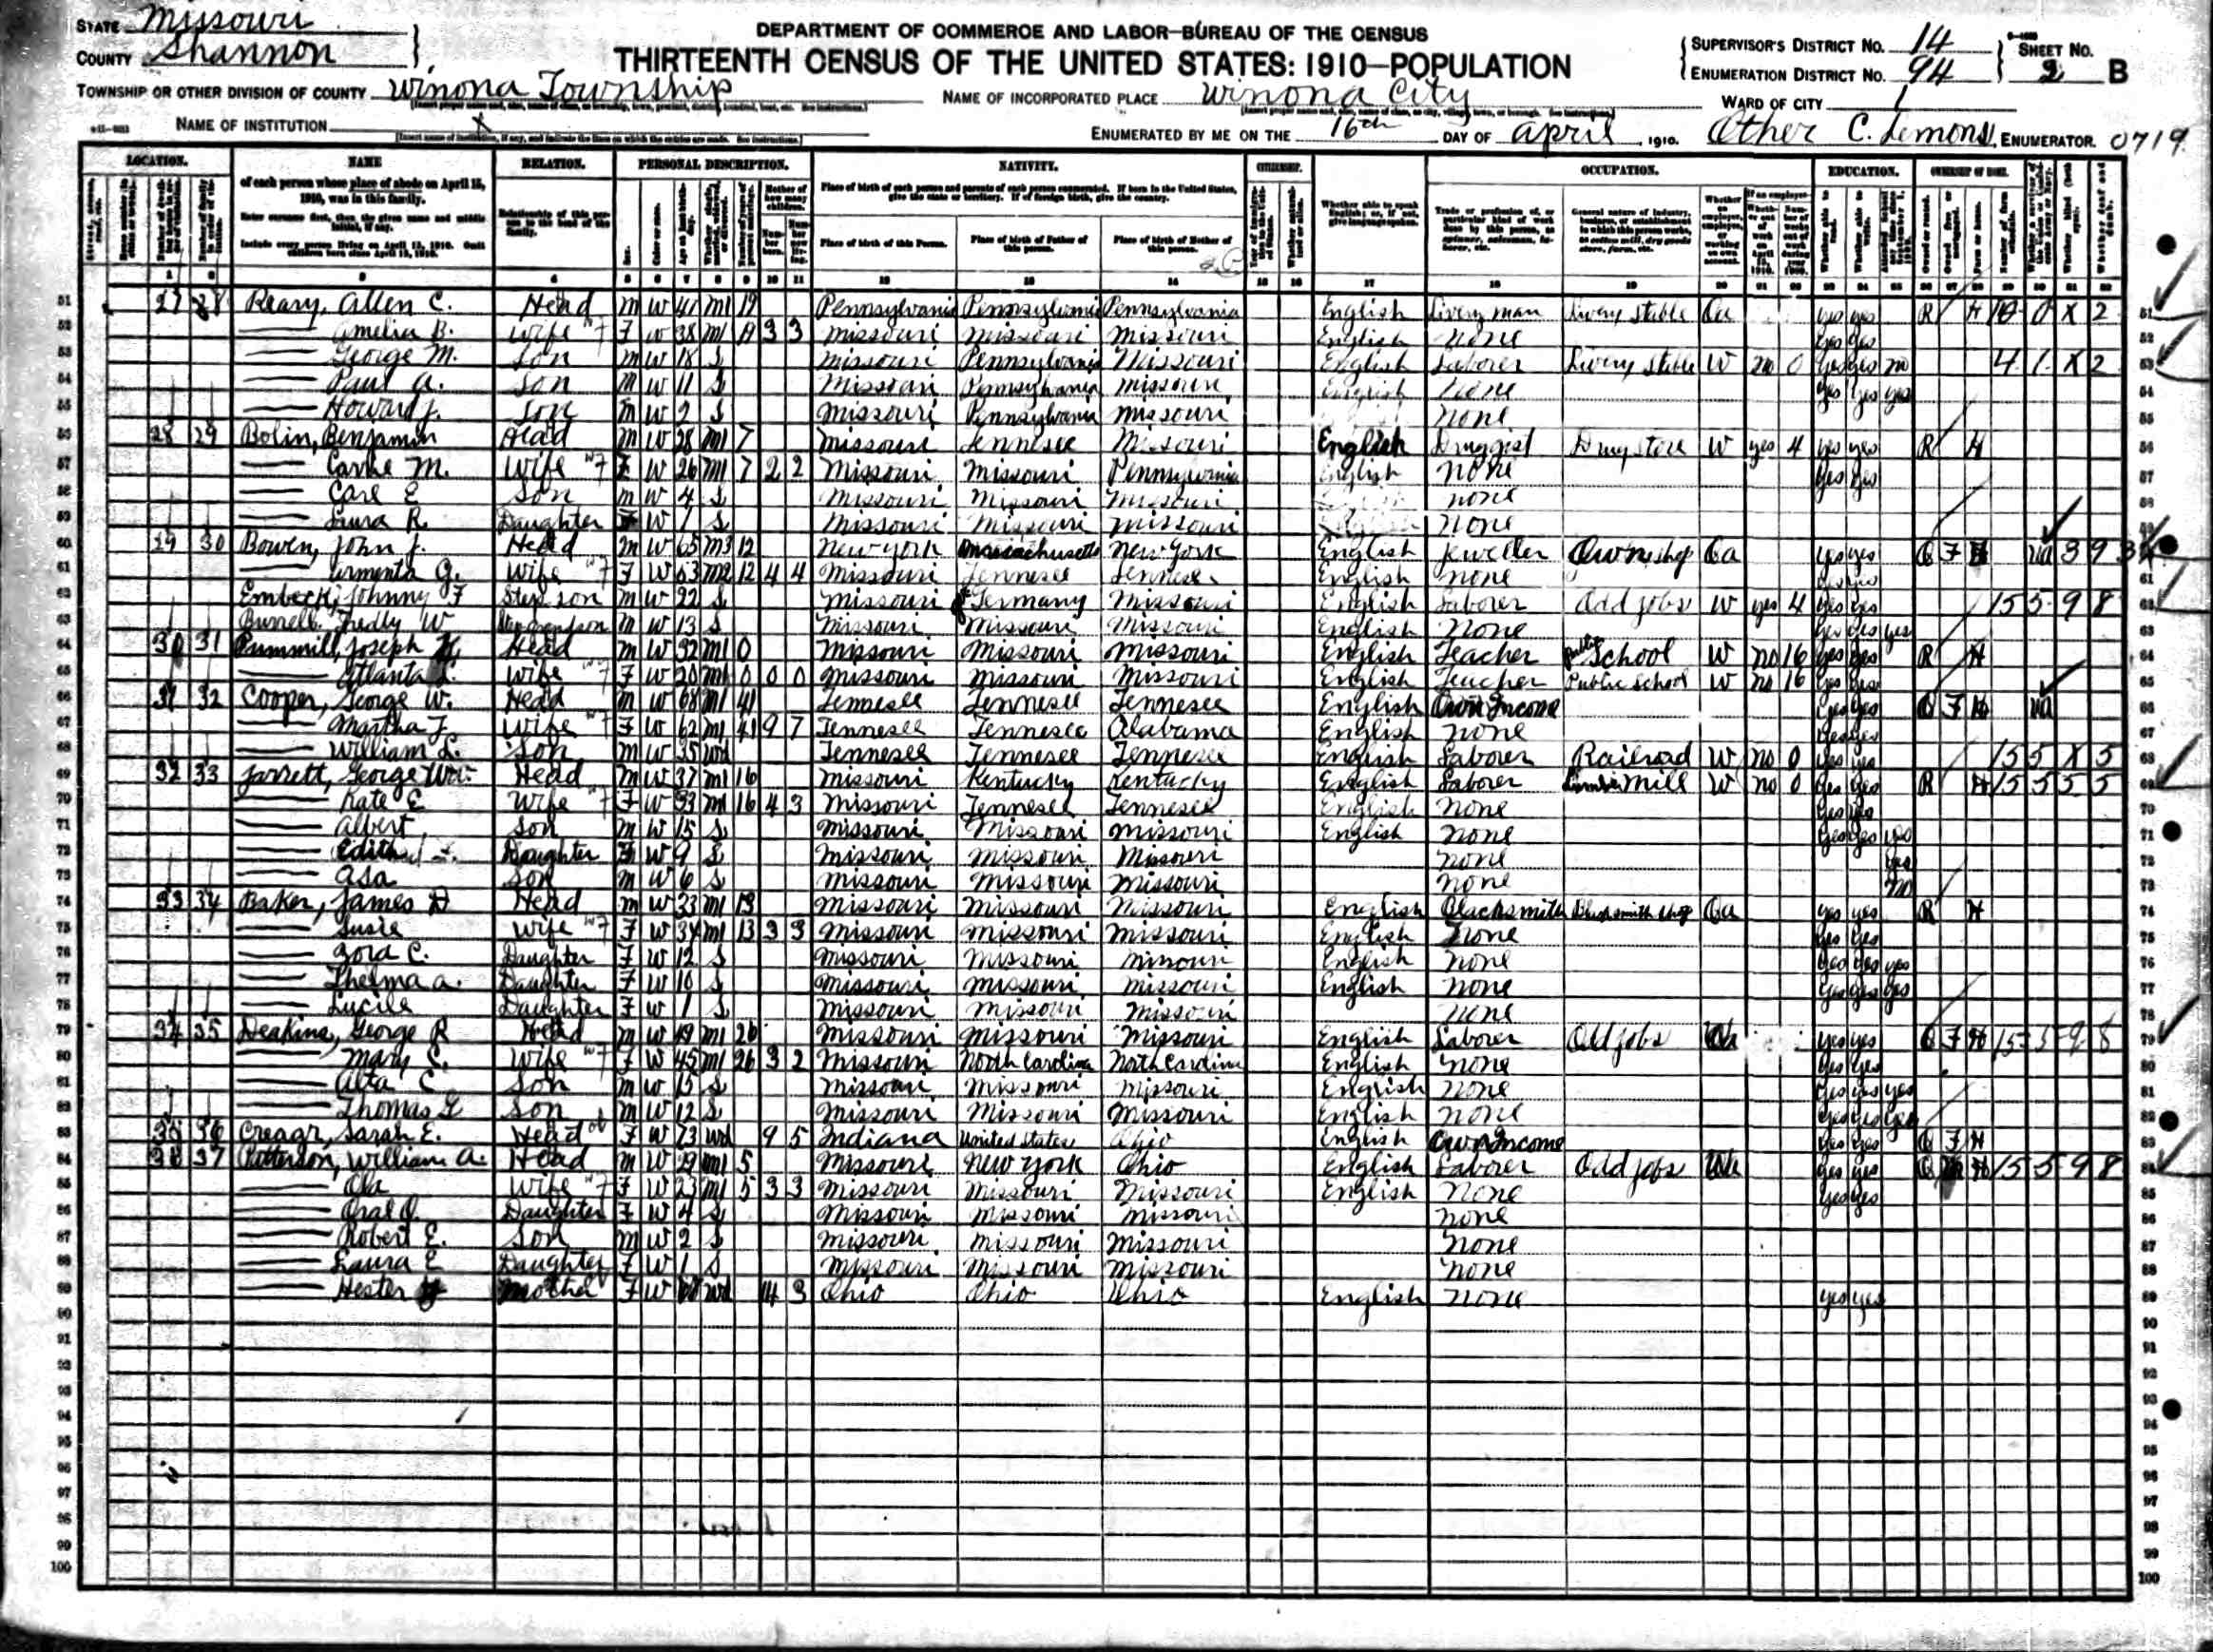 STATE Missouri
COUNTY Shannon
DEPARTMENT OF COMMERCE AND LABOR—BUREAU OF THE CENSUS
THIRTEENTH CENSUS OF THE UNITED STATES: 1910—POPULATION
SUPERVISOR'S DISTRICT No. 14
ENUMERATION DISTRICT No. 94
SHEET No. 2 B
TOWNSHIP OR OTHER DIVISION OF COUNTY Winona Township
NAME OF INCORPORATED PLACE Winona City
WARD OF CITY 1
NAME OF INSTITUTION X
ENUMERATED BY ME ON THE 16th DAY OF April, 1910. Other C. Lemons, ENUMERATOR. 0719
LOCATION. NAME RELATION. PERSONAL DESCRIPTION. NATIVITY. CITIZENSHIP. OCCUPATION. EDUCATION. OWNERSHIP OF HOME.
of each person whose place of abode on April 15, 1910, was in this family.
Enter surname first, then the given name and middle initial, if any.
Include every person living on April 15, 1910. Omit children born since April 15, 1910.
Relationship of this person to the head of the family.
Place of birth of each person and parents of each person enumerated. If born in the United States, give the state or territory. If of foreign birth, give the country.
Place of birth of this Person. Place of birth of Father of this person. Place of birth of Mother of this person.
51 27 28 Reary, Allen C. Head M W 41 M1 19 Pennsylvania Pennsylvania Pennsylvania English Livery man Livery Stable Oa yes yes R H
52 Amelia B. Wife F W 38 M1 19 3 3 Missouri Missouri Missouri English None yes yes
53 George M. Son M W 18 S Missouri Pennsylvania Missouri English Laborer Livery Stable W no 0 yes yes no
54 Paul A. Son M W 11 S Missouri Pennsylvania Missouri English None yes yes yes
55 Howard J. Son M W 2 S Missouri Pennsylvania Missouri None
56 28 29 Bolin, Benjamin Head M W 28 M1 7 Missouri Tennesee Missouri English Druggist Drug store W yes 4 yes yes R H
57 Carrie M. Wife F W 26 M1 7 2 2 Missouri Missouri Pennsylvania English None yes yes
58 Carl E Son M W 4 S Missouri Missouri Missouri none
59 Laura R. Daughter F W 1 S Missouri Missouri Missouri None
60 29 30 Bowen, John J. Head M W 65 M3 12 New York Massachusetts New York English Jeweller Own shop Oa yes yes O F H ua
61 Armenta G. Wife F W 53 M2 12 4 4 Missouri Tennesee Tennesee English None yes yes
62 Embeck, Johnny F Step son M W 22 S Missouri Germany Missouri English Laborer Odd jobs W yes 4 yes yes 155-98
63 Burrell, Fredly W M W 13 S Missouri Missouri Missouri English None yes yes yes
64 30 31 Pummill, Joseph Head M W 32 M1 0 Missouri Missouri Missouri English Teacher Public School W no 16 yes yes R H
65 Atlanta L. Wife F W 20 M1 0 0 0 Missouri Missouri Missouri English Teacher Public School W no 16 yes yes
66 31 32 Cooper, George W. Head M W 68 M1 41 Tennesee Tennesee Tennesee English Own Income yes yes O F H ua
67 Martha F. Wife F W 62 M1 41 9 7 Tennesee Tennesee Alabama English None yes yes
68 William L. Son M W 35 Wd Tennesee Tennesee Tennesee English Laborer Railroad W no 0 yes yes 155 X 5
69 32 33 Jarrett, George Wm. Head M W 37 M1 16 Missouri Kentucky Kentucky English Laborer Lumber Mill W no 0 yes yes R H 15555
70 Kate E Wife F W 33 M1 16 4 3 Missouri Tennesee Tennesee English None yes yes
71 Albert Son M W 15 S Missouri Missouri Missouri English None yes yes yes
72 Edith L. Daughter F W 9 S Missouri Missouri Missouri None yes
73 Asa Son M W 6 S Missouri Missouri Missouri None no
74 33 34 Baker, James D Head M W 33 M1 13 Missouri Missouri Missouri English Blacksmith Blacksmith shop Oa yes yes R H
75 Susie Wife F W 34 M1 13 3 3 Missouri Missouri Missouri English None yes yes
76 Zora C. Daughter F W 12 S Missouri Missouri Missouri English None yes yes yes
77 Thelma A. Daughter F W 10 S Missouri Missouri Missouri English None yes yes yes
78 Lucile Daughter F W 1 S Missouri Missouri Missouri None
79 34 35 Deakins, George R Head M W 49 M1 26 Missouri Missouri Missouri English Laborer Odd jobs yes yes O F H 155-98
80 Mary E. Wife F W 45 M1 26 3 2 Missouri North Carolina North Carolina English None yes yes
81 Alta C Son M W 15 S Missouri Missouri Missouri English None yes yes yes
82 Thomas G Son M W 12 S Missouri Missouri Missouri English None yes yes yes
83 35 36 Creagr, Sarah E. Head F W 73 Wd 9 5 Indiana United States Ohio English Own Income yes yes O F H
84 36 37 Patterson, William A. Head M W 29 M1 5 Missouri New York Ohio English Laborer Odd jobs yes yes O H 15598
85 Ola Wife F W 23 M1 5 3 3 Missouri Missouri Missouri English None yes yes
86 Oral O. Daughter F W 4 S Missouri Missouri Missouri None
87 Robert E. Son M W 2 S Missouri Missouri Missouri None
88 Laura E Daughter F W 1 S Missouri Missouri Missouri None
89 Hester Mother F W Wd 14 3 Ohio Ohio Ohio English None yes yes
90
91
92
93
94
95
96
97
98
99
100